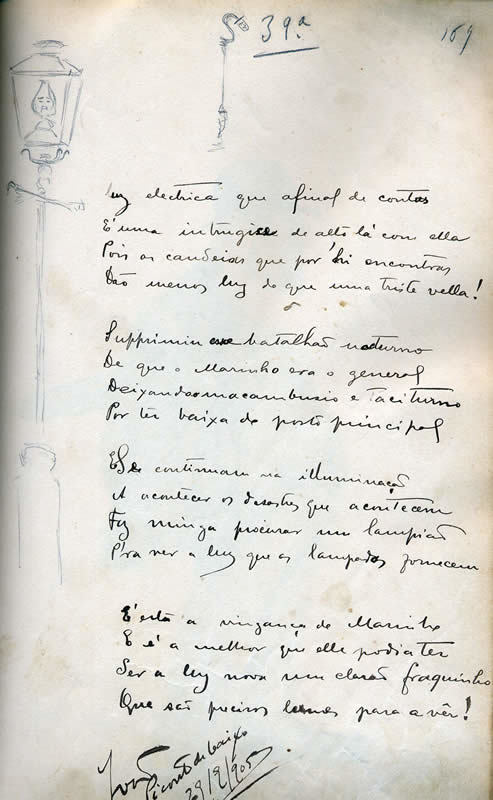 39.ª
169
Luz electrica que afinal de contas
É uma intrugice de alto lá com ella
Pois as candeias que por hi encontras
Dão menos luz do que uma triste vella!
Supprimiu esse batalhão nocturno
De que o Marinho era o general
Deixando-o macambusio e taciturno
Por ter baixa de posto principal
E se continuam na illuminação
A acontecer os desastres que acontecem
Faz mingua procurar um lampião
P'ra ver a luz que as lampadas fornecem
E' esta a vingança de Marinho
E é a melhor que elle podia ter
Ser a luz nova um clarão fraquinho
Que são precisos lumes para a vêr!
Picôto de baixo
29/9/905